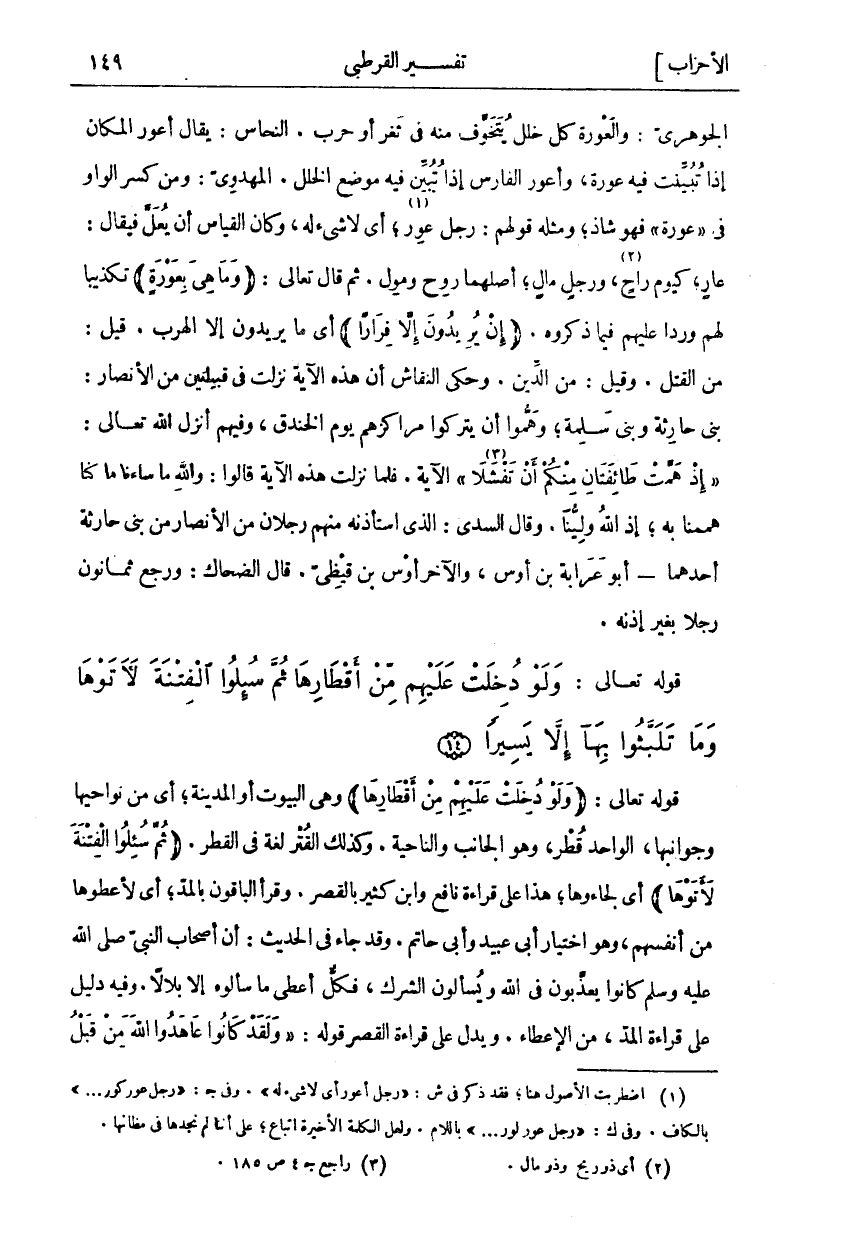 الأحزاب] تفسير القرطبى ١٤٩
الجوهرىّ : والعَوْرة كل خلل يُتَخَوَّف منه فى ثَغر أو حرب . النحاس : يقال أعور المكان
إذا تُبُيّنت فيه عورة، وأعور الفارس إذا تُبُيِّن فيه موضع الخلل . المهدوىّ : ومن كسر الواو
فى «عورة» فهو شاذ؛ ومثله قولهم : رجل عوِر(١)؛ أى لا شىء له، وكان القياس أن يُعَلَّ فيقال :
عارٍ؛ كيوم راحٍ(٢)، ورجل مالٍ؛ أصلهما روح ومول . ثم قال تعالى : ﴿وَمَا هِىَ بِعَوْرَةٍ﴾ تكذيبا
لهم وردا عليهم فيما ذكروه . ﴿إِنْ يُرِيدُونَ إِلَّا فِرَارًا﴾ أى ما يريدون إلا الهرب . قيل :
من القتل . وقيل : من الدِّين . وحكى النقاش أن هذه الآية نزلت فى قبيلتين من الأنصار :
بنى حارثة وبنى سَلِمة؛ وهَمُّوا أن يتركوا مراكزهم يوم الخندق، وفيهم أنزل الله تعالى :
«إِذْ هَمَّتْ طَائِفَتَانِ مِنْكُمْ أَنْ تَفْشَلَا(٣)» الآية . فلما نزلت هذه الآية قالوا : والله ما ساءنا ما كنا
هممنا به؛ إذ اللهُ ولِيُّنَا . وقال السدى : الذى استأذنه منهم رجلان من الأنصار من بنى حارثة
أحدهما — أبو عَرَابة بن أوس، والآخر أوْس بن قَيْظِىّ . قال الضحاك : ورجع ثمانون
رجلا بغير إذنه .
قوله تعالى : وَلَوْ دُخِلَتْ عَلَيْهِم مِّنْ أَقْطَارِهَا ثُمَّ سُئِلُوا ٱلْفِتْنَةَ لَآتَوْهَا
وَمَا تَلَبَّثُوا بِهَآ إِلَّا يَسِيرًا ١٤
قوله تعالى : ﴿وَلَوْ دُخِلَتْ عَلَيْهِمْ مِنْ أَقْطَارِهَا﴾ وهى البيوت أو المدينة؛ أى من نواحيها
وجوانبها، الواحد قُطْر، وهو الجانب والناحية . وكذلك القُتْر لغة فى القطر . ﴿ثُمَّ سُئِلُوا الْفِتْنَةَ
لَأَتَوْهَا﴾ أى لجاءوها؛ هذا على قراءة نافع وابن كثير بالقصر . وقرأ الباقون بالمدّ؛ أى لأعطوها
من أنفسهم، وهو اختيار أبى عبيد وأبى حاتم . وقد جاء فى الحديث : أن أصحاب النبىّ صلى الله
عليه وسلم كانوا يعذَّبون فى الله ويُسألون الشرك، فكلٌّ أعطى ما سألوه إلا بلالًا. وفيه دليل
على قراءة المدّ، من الإعطاء . ويدل على قراءة القصر قوله : «وَلَقَدْ كَانُوا عَاهَدُوا اللهَ مِنْ قَبْلُ
(١) اضطربت الأصول هنا؛ فقد ذكر فى ش : «رجل أعور أى لا شىء له» . وفى ج : «رجل عور كور ...»
بالكاف . وفى ك : «رجل عور لور ...» باللام . ولعل الكلمة الأخيرة اتباع؛ على أننا لم نجدها فى مظانها .
(٢) أى ذو ريح وذو مال . (٣) راجع ج ٤ ص ١٨٥ .